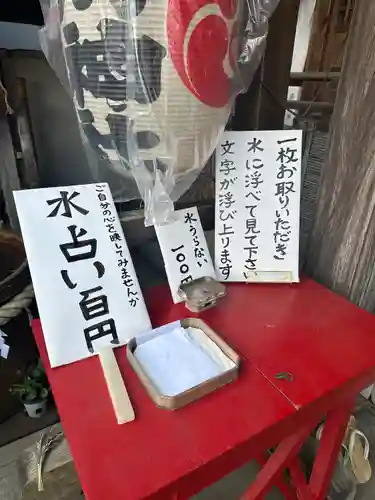 一枚お取りいただき
水に浮べて見て下さい
文字が浮び上ります
水うらない
一〇〇円
ご自分の心を映してみませんか
水占い百円